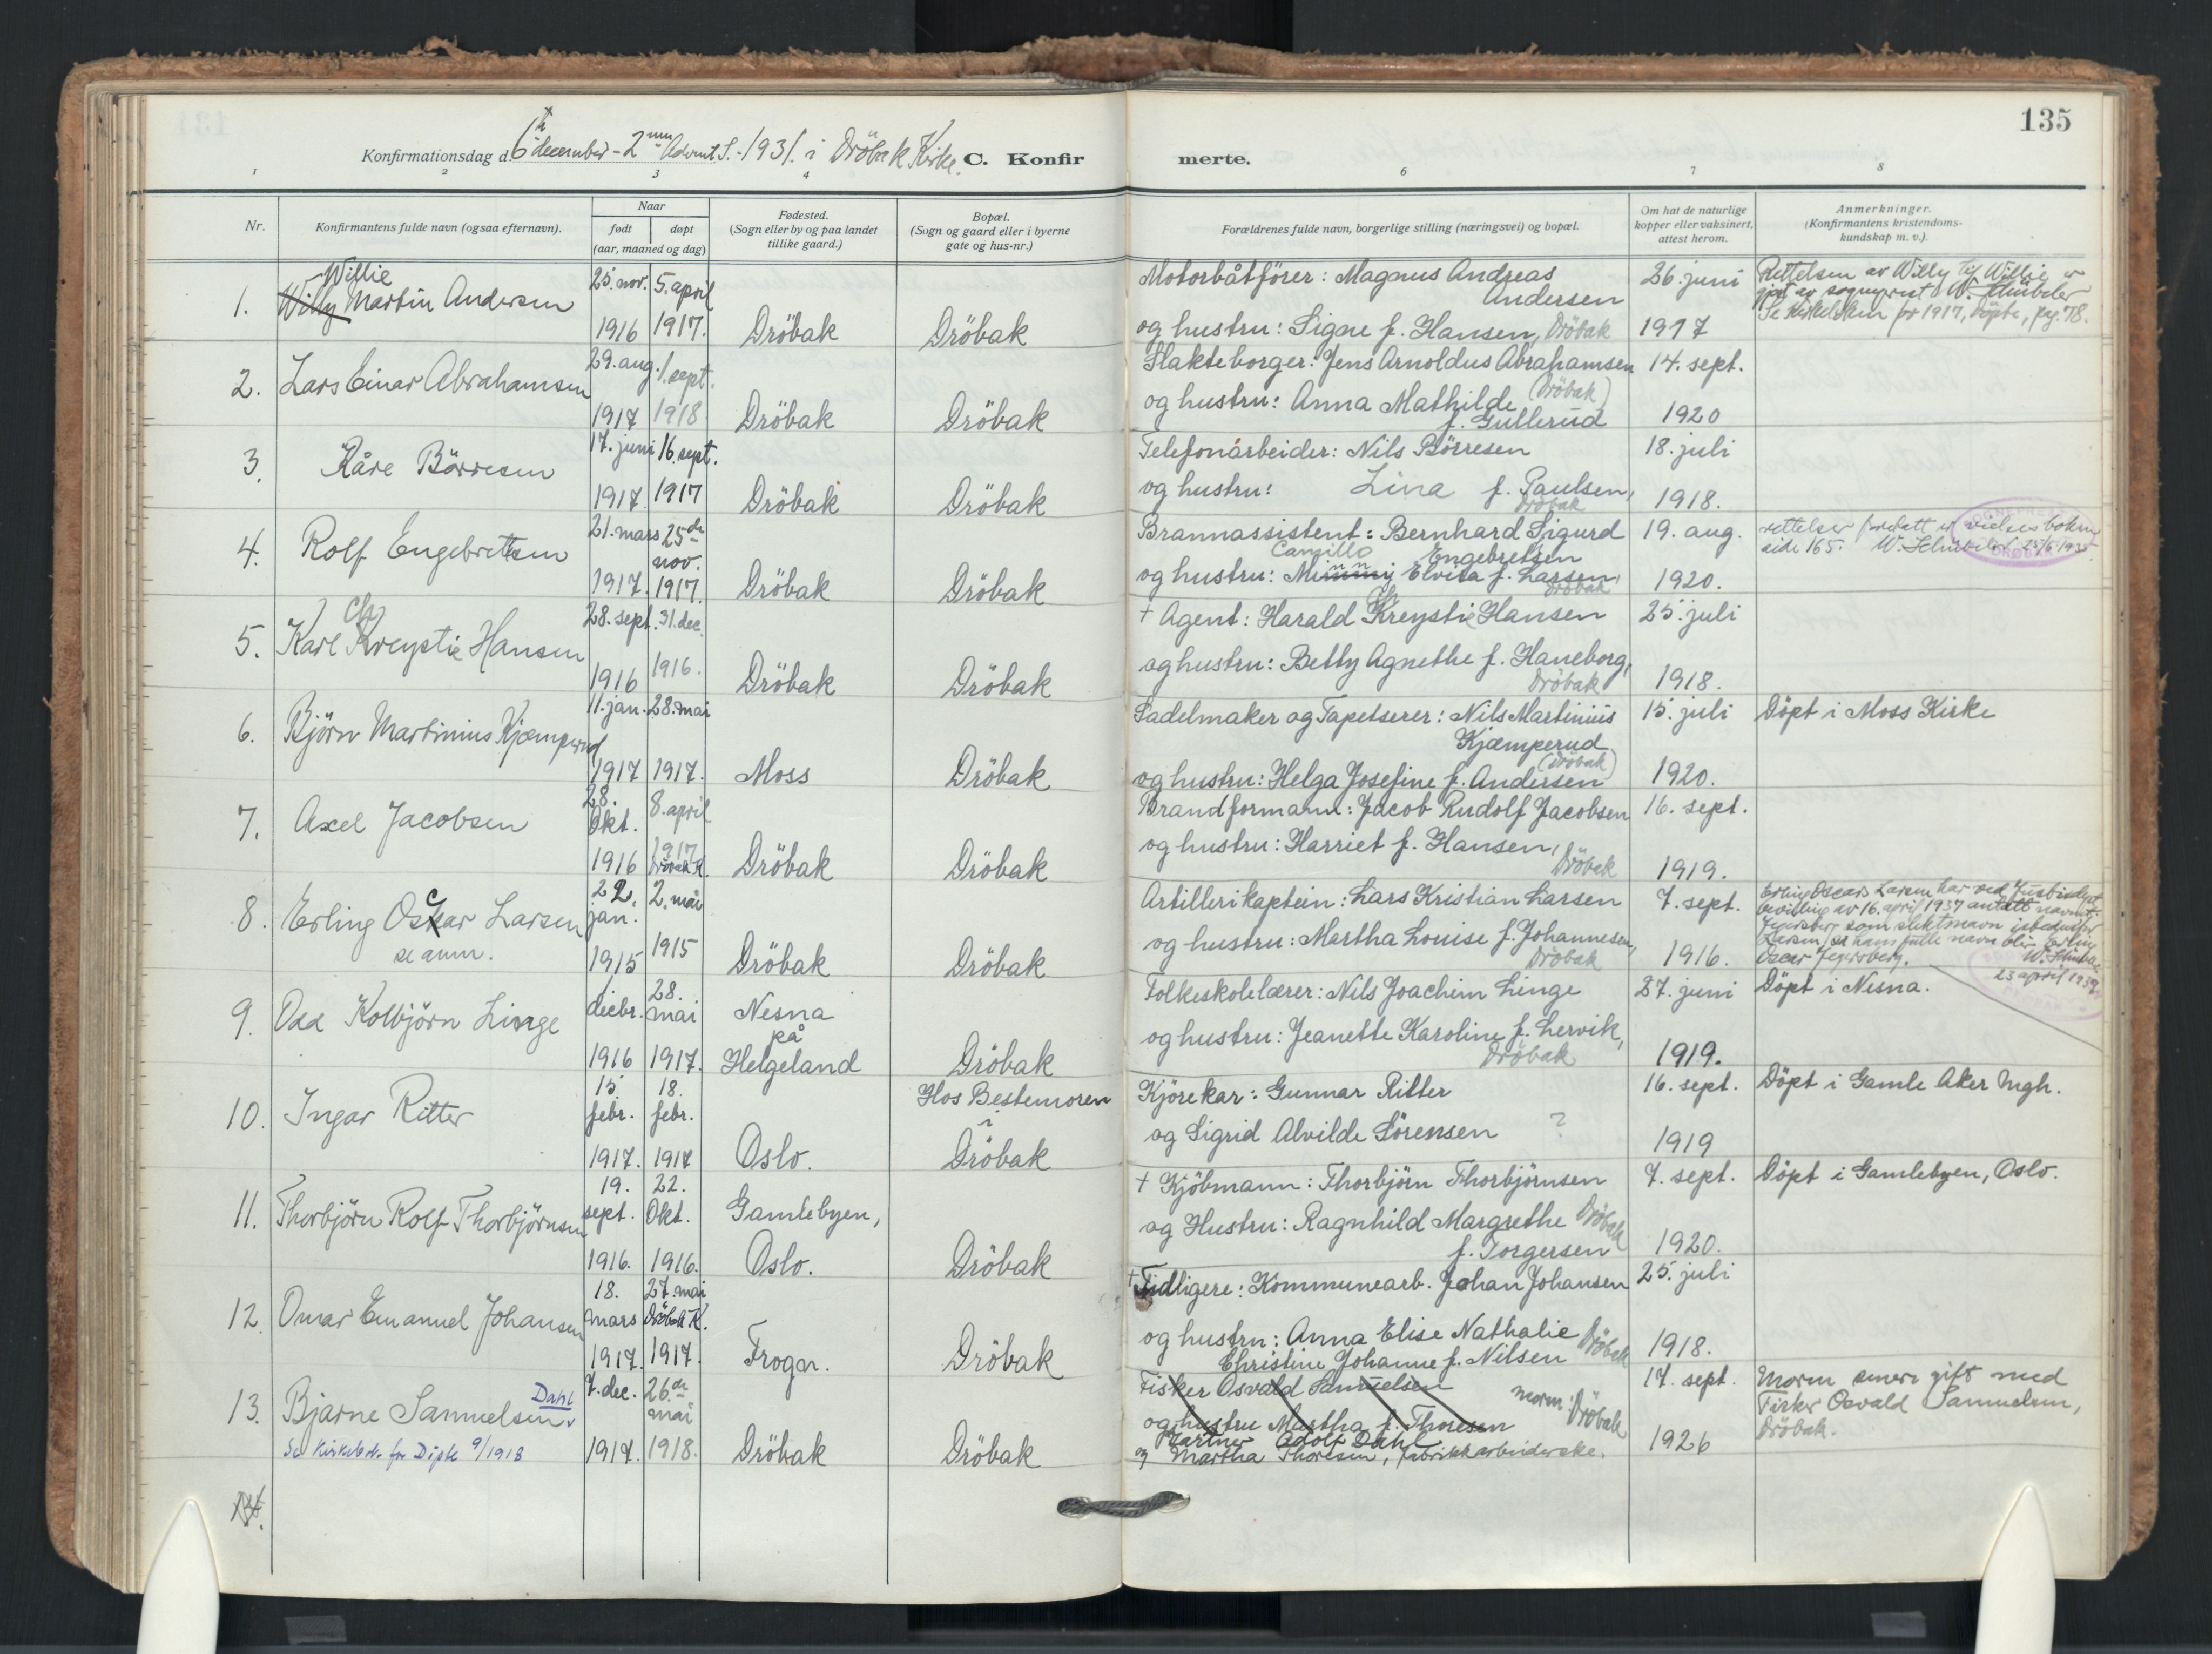 135
Konfirmationsdag d. 6te december - 2nn Advent S. - 1931. i Dröbak Kirke. C. Konfirmerte.
1 2 3 4 6 7 8
Nr.
Konfirmantens fulde navn (ogsaa efternavn).
Naar
født
døpt
(aar, maaned og dag)
Fødested.
(Sogn eller by og paa landet
tillike gaard.)
Bopæl.
(Sogn og gaard eller i byerne
gate og hus-nr.)
Forældrenes fulde navn, borgerlige stilling (næringsvei) og bopæl.
Om hat de naturlige
kopper eller vaksinert,
attest herom.
Anmerkninger.
(Konfirmantens kristendoms-
kundskap m. v.).
Willie
1. Willy Martin Andersen
25. nov. 1916
5. april 1917.
Dröbak
Dröbak
Motorbåtförer: Magnus Andreas
Andersen
og hustru: Signe f. Hansen, Dröbak
26. juni
1917
Rettelsen av Willy til Willie er
gjort av sogneprest W. Schübeler
Se Kirkeboken for 1917, Döpte, pag. 78.
2. Lars Einar Abrahamsen
29. aug. 1917
1. sept. 1918
Dröbak
Dröbak
Slakteborger: Jens Arnoldus Abrahamsen
og hustru: Anna Mathilde (Dröbak)
f. Gullerud
14. sept.
1920
3. Kåre Börresen
17. juni 1917
16. sept. 1917
Dröbak
Dröbak
Telefonarbeider: Nils Börresen
og hustru: Lina f. Paulsen,
Dröbak
18. juli
1918.
4. Rolf Engebretsen
21. mars 1917.
25de nov. 1917.
Dröbak
Dröbak
Brannassistent: Bernhard Sigurd
Camillo Engebretsen
og hustru: Minny Elvita f. Larsen,
Dröbak
19. aug.
1920.
rettelser foretatt er vielses boken
side 165. W. Schübeler 25/5 1935.
Ch
5. Karl Kreystie Hansen
28. sept. 1916
31. dec. 1916.
Dröbak
Dröbak
Ch
† Agent: Harald Kreystie Hansen
og hustru: Betty Agnethe f. Haneborg,
Dröbak
25. juli
1918.
6. Björn Martinius Kjæmperud
11. jan. 1917
28. mai 1917.
Moss
Dröbak
Sadelmaker og Tapetserer: Nils Martinius
Kjæmperud
(Dröbak)
og hustru: Helga Josefine f. Andersen
15. juli
1920.
Döpt i Moss Kirke
7. Axel Jacobsen
28. Okt. 1916
8. april 1917
Dröbak K.
Dröbak
Dröbak
Brandformann: Jacob Rudolf Jacobsen
og hustru: Harriet f. Hansen,
Dröbak
16. sept.
1919.
8. Erling Oscar Larsen
se anm.
22. jan. 1915
2. mai 1915
Dröbak
Dröbak
Artillerikaptein: Lars Kristian Larsen
og hustru: Martha Louise f. Johannesen,
Dröbak
7. sept.
1916.
Erling Oscar Larsen har ved Justisdept
bevilling av 16. april 1937 antatt navnet
Jegersberg som slektsnavn istedenfor
Larsen, så hans fulle navn blir Erling
Oscar Jegersberg. W. Schübeler
23 april 1937
9. Odd Kolbjörn Linge
1. decbr. 1916
28. mai 1917.
Nesna
på
Helgeland
Dröbak
Folkeskolelærer: Nils Joachim Linge
og hustru: Jeanette Karoline f. Lervik,
Dröbak
27. juni
1919.
Döpt i Nesna.
10. Ingar Ritter
15. febr. 1917.
18. febr. 1917
Oslo.
Hos Bestemoren
i
Dröbak
Kjörekar: Gunnar Ritter
og Sigrid Alvilde Sörensen ?
16. sept.
1919
Döpt i Gamle Aker mgh.
11. Thorbjörn Rolf Thorbjörnsen
19. sept. 1916.
22. Okt. 1916.
Gamlebyen,
Oslo.
Dröbak
† Kjöbmann: Thorbjörn Thorbjörnsen
og Hustru: Ragnhild Margrethe Dröbak
f. Torgersen
7. sept.
1920.
Döpt i Gamlebyen, Oslo.
12. Omar Emanuel Johansen
18. mars 1917.
27. mai Dröbak K. 1917.
Frogn.
Dröbak
† Tidligere: Kommunearb. Johan Johansen
og hustru: Anna Elise Nathalie Dröbak
Christine Johanne f. Nilsen
25. juli
1918.
Dahl
13. Bjarne Samuelsen
Se Kirkebok for Döpte 9/1918
7. dec. 1917.
26de mai 1918.
Dröbak
Dröbak
Fisker Osvald Samuelsen
og hustru Martha f. Thoresen moren: Dröbak
Gartner Adolf Dahl
og Martha Thoresen, fabrikkarbeiderske.
17. sept.
1926
Moren senere gift med
Fisker Osvald Samuelsen,
Dröbak.
14.